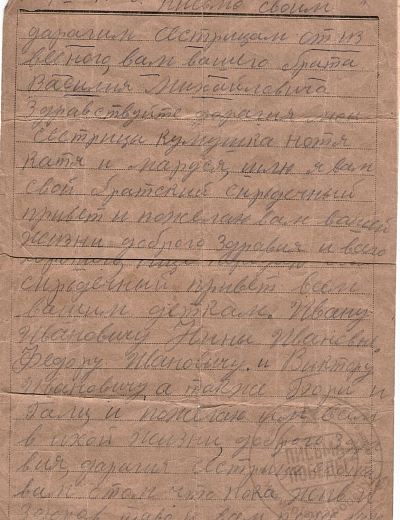 письмо своим
дарагим сестрицам от из
весного вам вашего брата
Василия Михайловича
Здравствуйте дарагия мои
сестрицы кумушка
катя и маруся шлю я вам
свой братский сирдечный
привет и пожелаю вам вашей
жизни доброго здравия и всего
сирдечный привет всем
вашим деткам. Ивану
Ивановичу Нини Ивановне
Федору Ивановичу и Виктору
Ивановичу а также Бори и
Гали и пожелаю
в ихой жизни доброго здра
вия дарагия сестрицы
вам о том что пока жив и
здоров
ПИСЬМА
ПОБЕДЫ